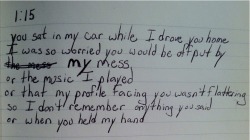 1:15
you sat in my car while I drove you home
I was so worried you would be off put by
the mess my mess
or the music I played
or that my profile facing you wasn't flattering
so I don't remember anything you said
or when you held my hand